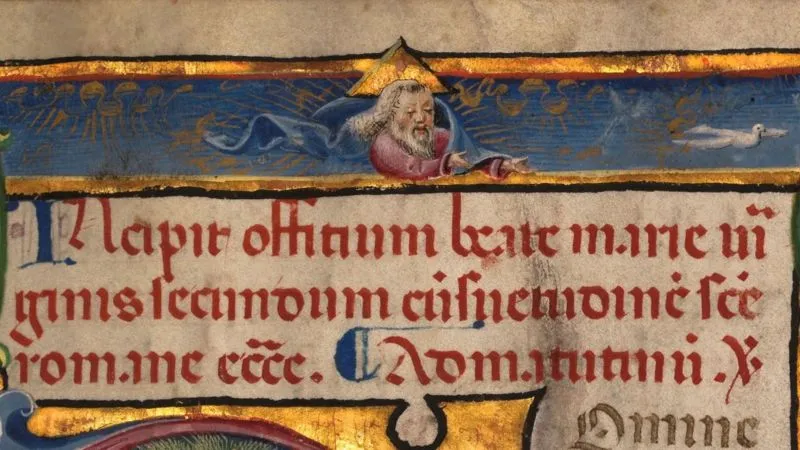 INcipit offitium beate marie uir
ginis secundum cōsuetudinē scē
romane eccē. ¶ Ad matutinū. ℣
Omine